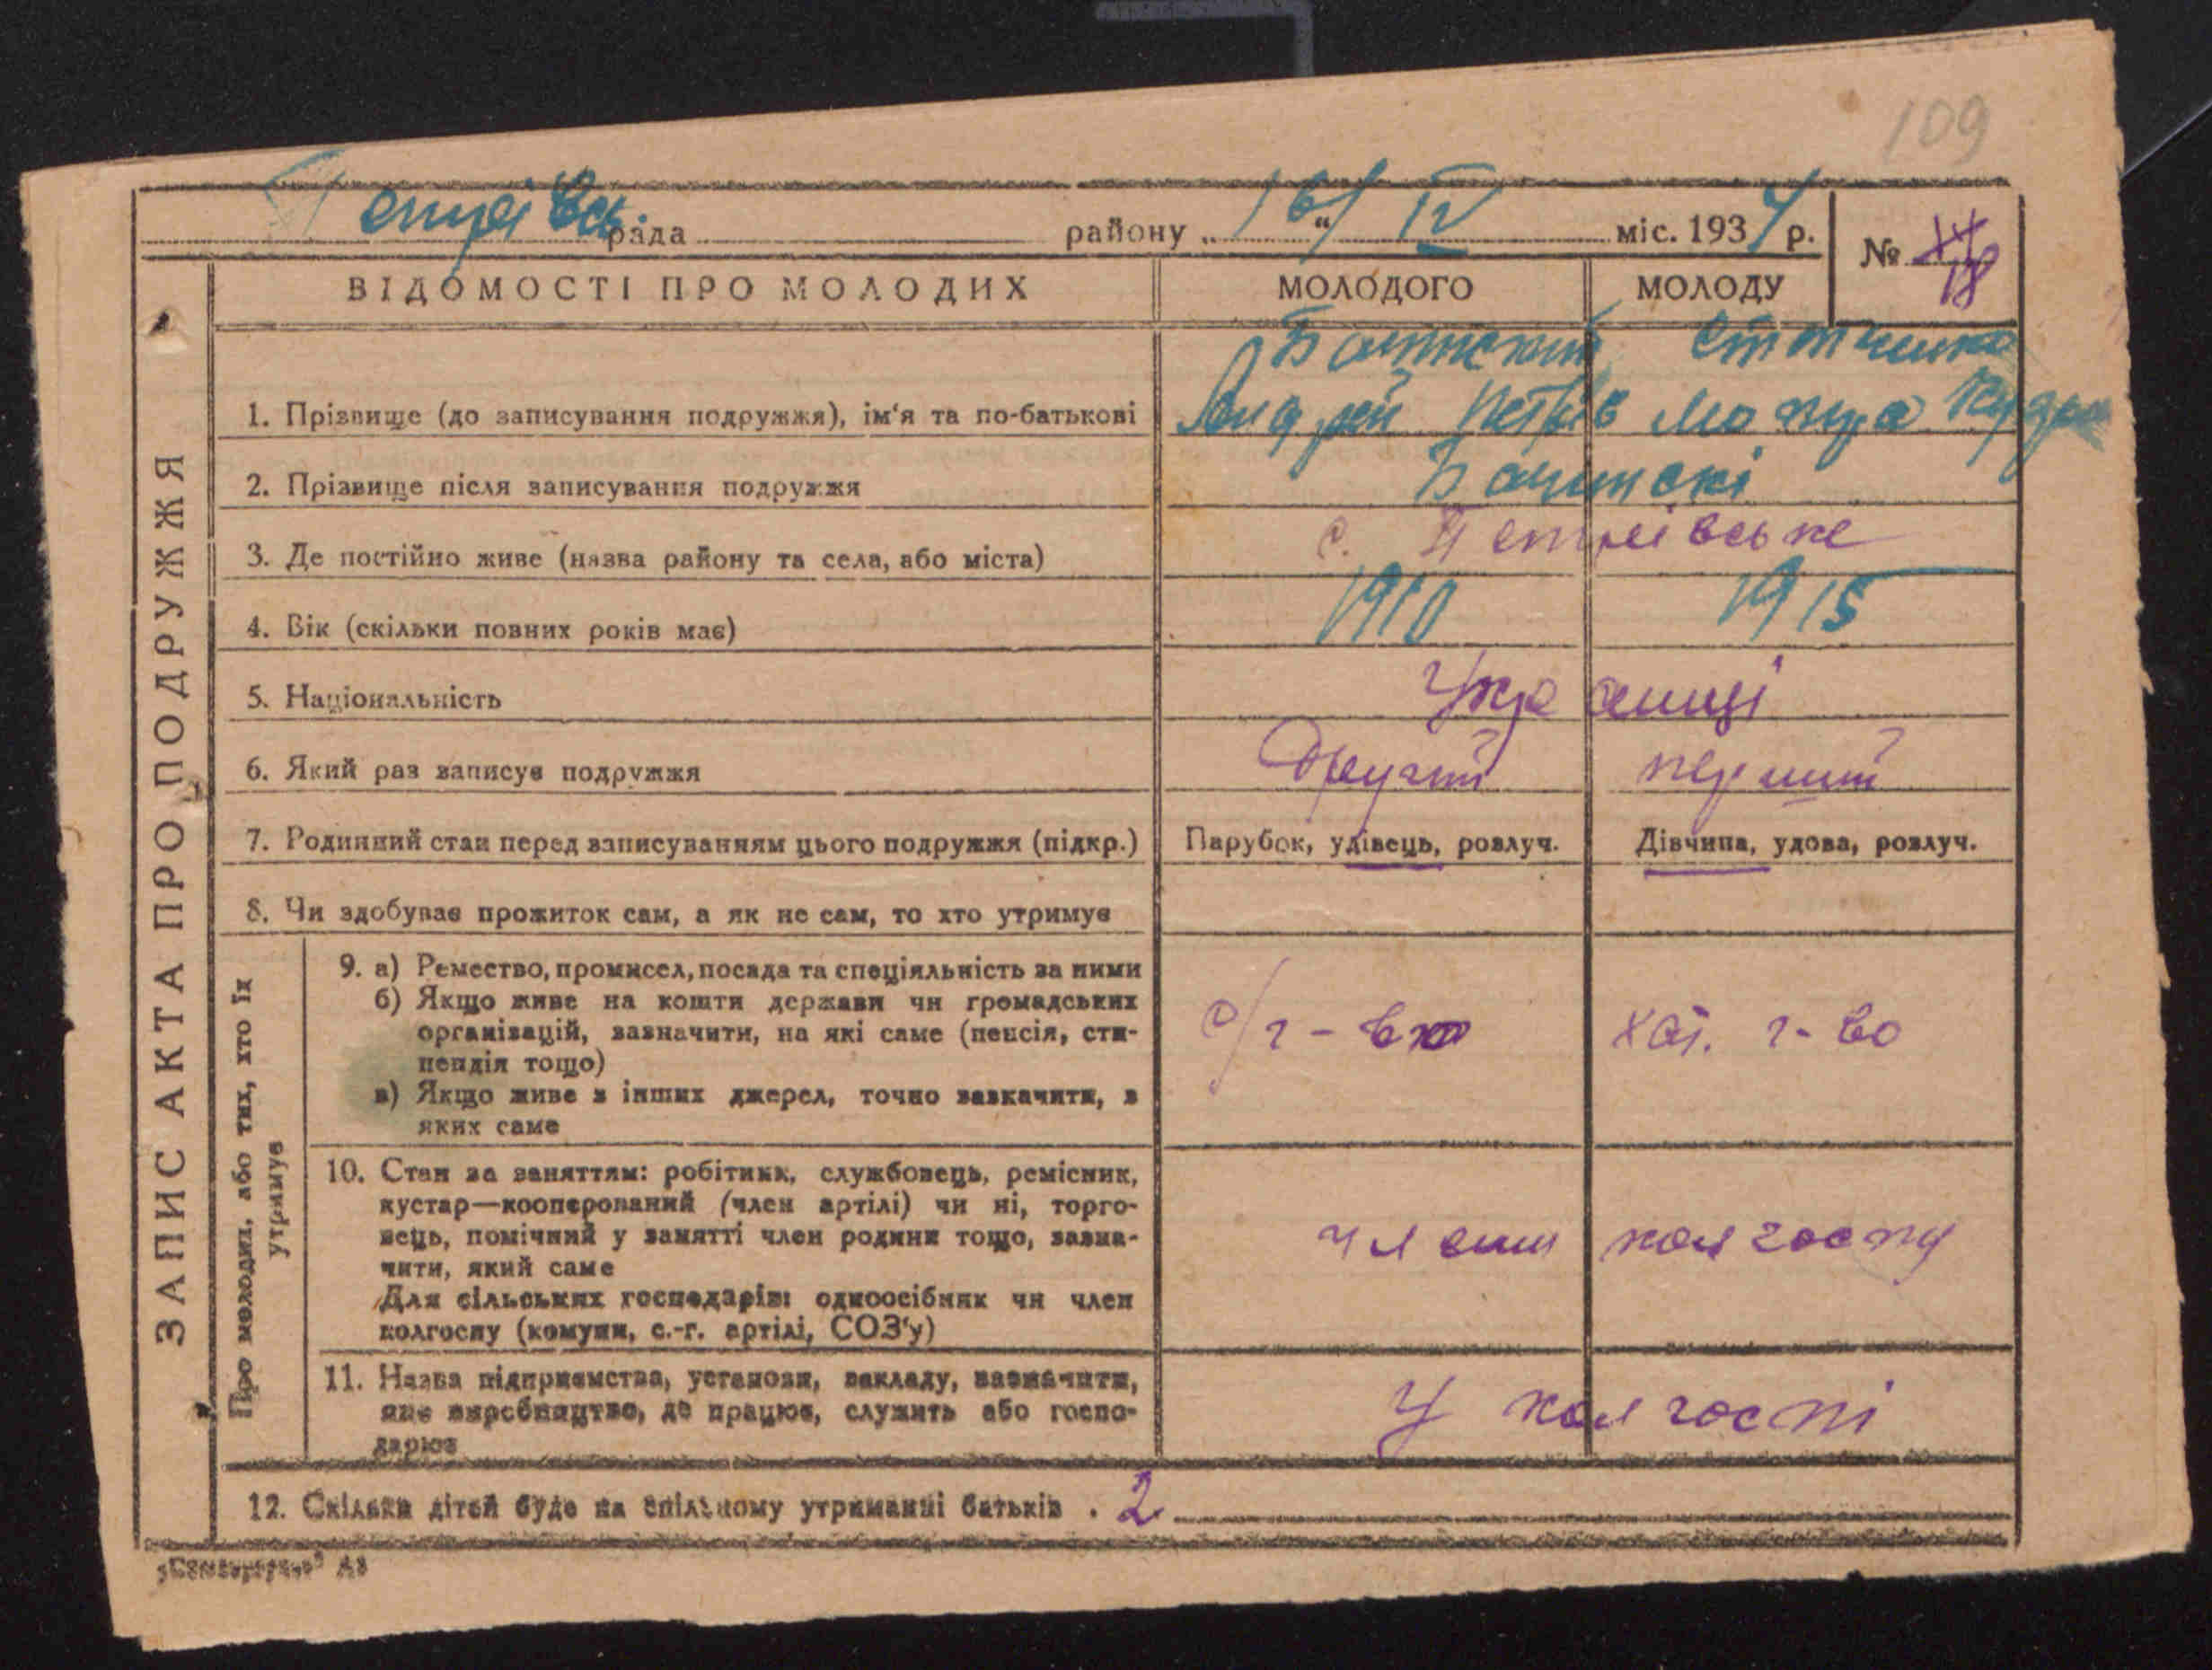 109
рада району „16“ IV міс. 1934 р. №
ВІДОМОСТІ ПРО МОЛОДИХ МОЛОДОГО МОЛОДУ
1. Прізвище (до записування подружжя), ім‘я та по-батькові Андрей Петрів
2. Прізвище після записування подружжя
3. Де постійно живе (назва району та села, або міста) с.
4. Вік (скільки повних років має) 1910 1915
5. Національність Українці
6. Який раз записує подружжя Другий перший
7. Родинний стан перед записуванням цього подружжя (підкр.) Парубок, удівець, розлуч. Дівчина, удова, розлуч.
8. Чи здобуває прожиток сам, а як не сам, то хто утримує
9. а) Ремество, промисел, посада та спеціяльність за ними
б) Якщо живе на кошти держави чи громадських
організацій, зазначити, на які саме (пенсія, сти-
пендія тощо)
в) Якщо живе з інших джерел, точно зазначити, з
яких саме
с/г-во хат. г-во
10. Стан за заняттям: робітник, службовець, ремісник,
кустар—кооперований (член артілі) чи ні, торго-
вець, помічний у занятті член родини тощо, зазна-
чити, який саме
Для сільських господарів: одноосібник чи член
колгоспу (комуни, с.-г. артілі, СОЗ‘у)
члени колгоспу
11. Назва підприємства, установи, закладу, зазначити,
яке виробництво, де працює, служить або госпо-
дарює
У колгоспі
12. Скільки дітей буде на спільному утриманні батьків . 2
ЗАПИС АКТА ПРО ПОДРУЖЖЯ
Про молодих, або тих, хто їх
утримує